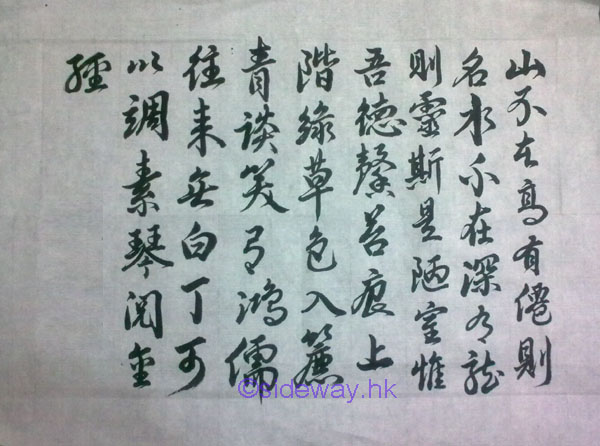 山不在高有僊則
名水不在深有龍
則靈斯是陋室惟
吾德馨苔痕上
階綠草色入簾
青談笑有鴻儒
往来無白丁可
以調素琴閱金
經
©sideway.hk